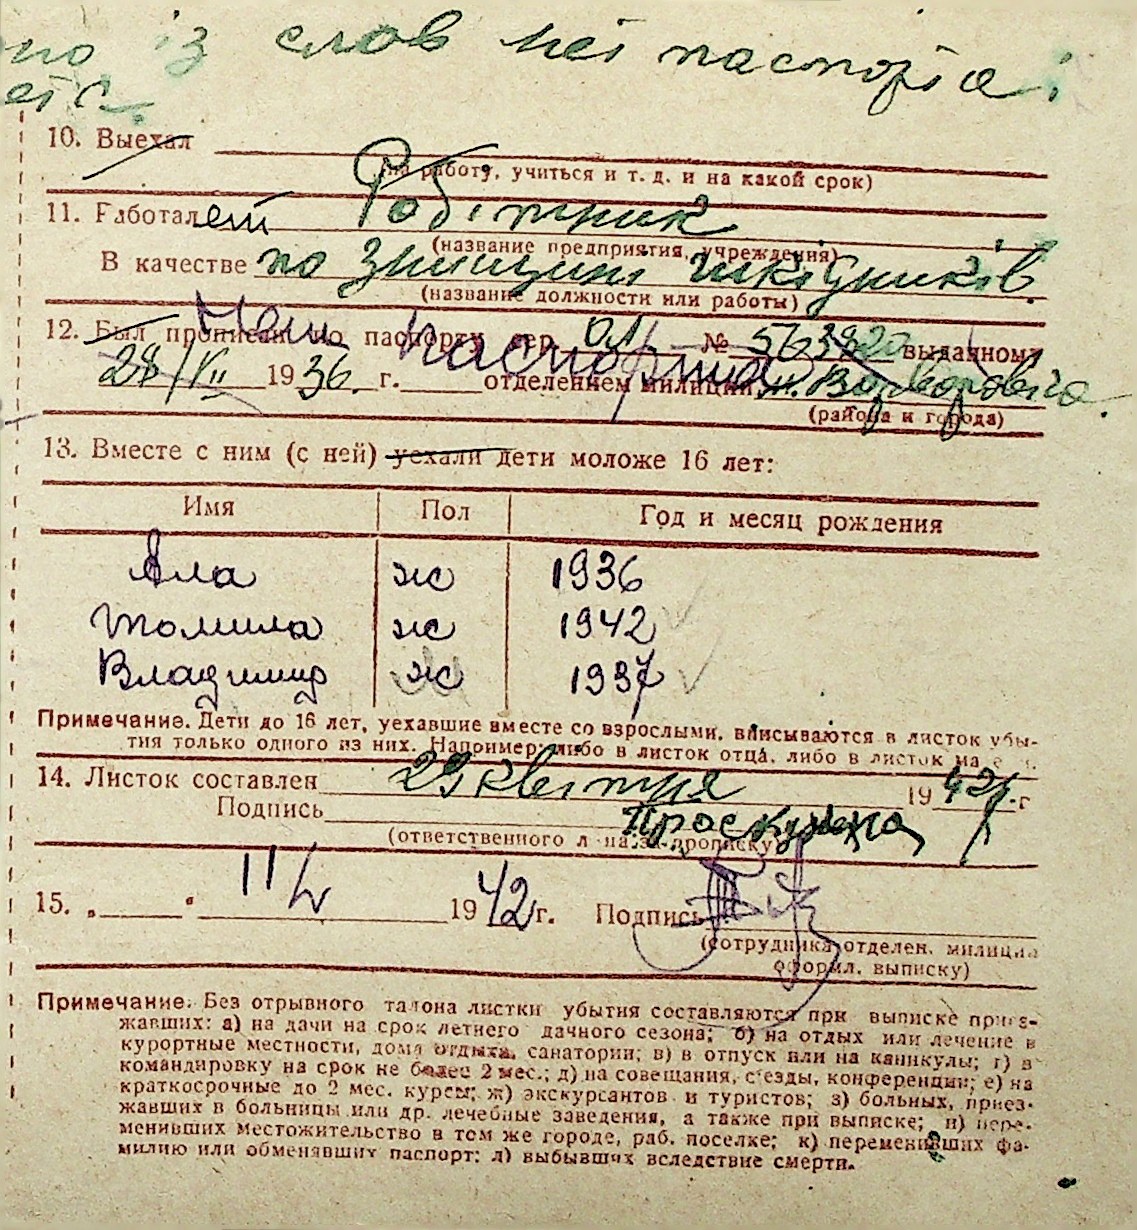 но із слов неї паспорта
еіс.
10. Выехал
(на работу, учиться и т. д. и на какой срок)
11. Работалет Робітник
(название предприятия, учреждения)
В качестве по знищині шкідників
(название должности или работы)
12. Был прописан по паспорту сер. ОЛ № 563920 выданному
Нет паспорта
28/VII 1936. г. отделением милиции
(района и города)
13. Вместе с ним (с ней) уехали дети моложе 16 лет:
Имя Пол Год и месяц рождения
Ала ж 1936
Томила ж 1942
Владимир ж 1937
Примечание. Дети до 16 лет, уехавшие вместе со взрослыми, вписываются в листок убы-
тия только одного из них. Например, либо в листок отца, либо в листок ма е и.
14. Листок составлен 29 квітня 1942 г
Подпись Проскурина
(ответственного л на за прописку)
15. „ “ 11/V 1942 г. Подпись
(сотрудника отделен. милиции
оформл. выписку)
Примечание. Без отрывного талона листки убытия составляются при выписке приез-
жавших: а) на дачи на срок летнего дачного сезона; б) на отдых или лечение в
курортные местности, дома отдыха, санатории; в) в отпуск или на каникулы; г) в
командировку на срок не более 2 мес.; д) на совещания, съезды, конференции; е) на
краткосрочные до 2 мес. курсы; ж) экскурсантов и туристов; з) больных, приез-
жавших в больницы или др. лечебные заведения, а также при выписке; и) пере-
менивших местожительство в том же городе, раб. поселке; к) переменивших фа-
милию или обменявших паспорт; л) выбывших вследствие смерти.